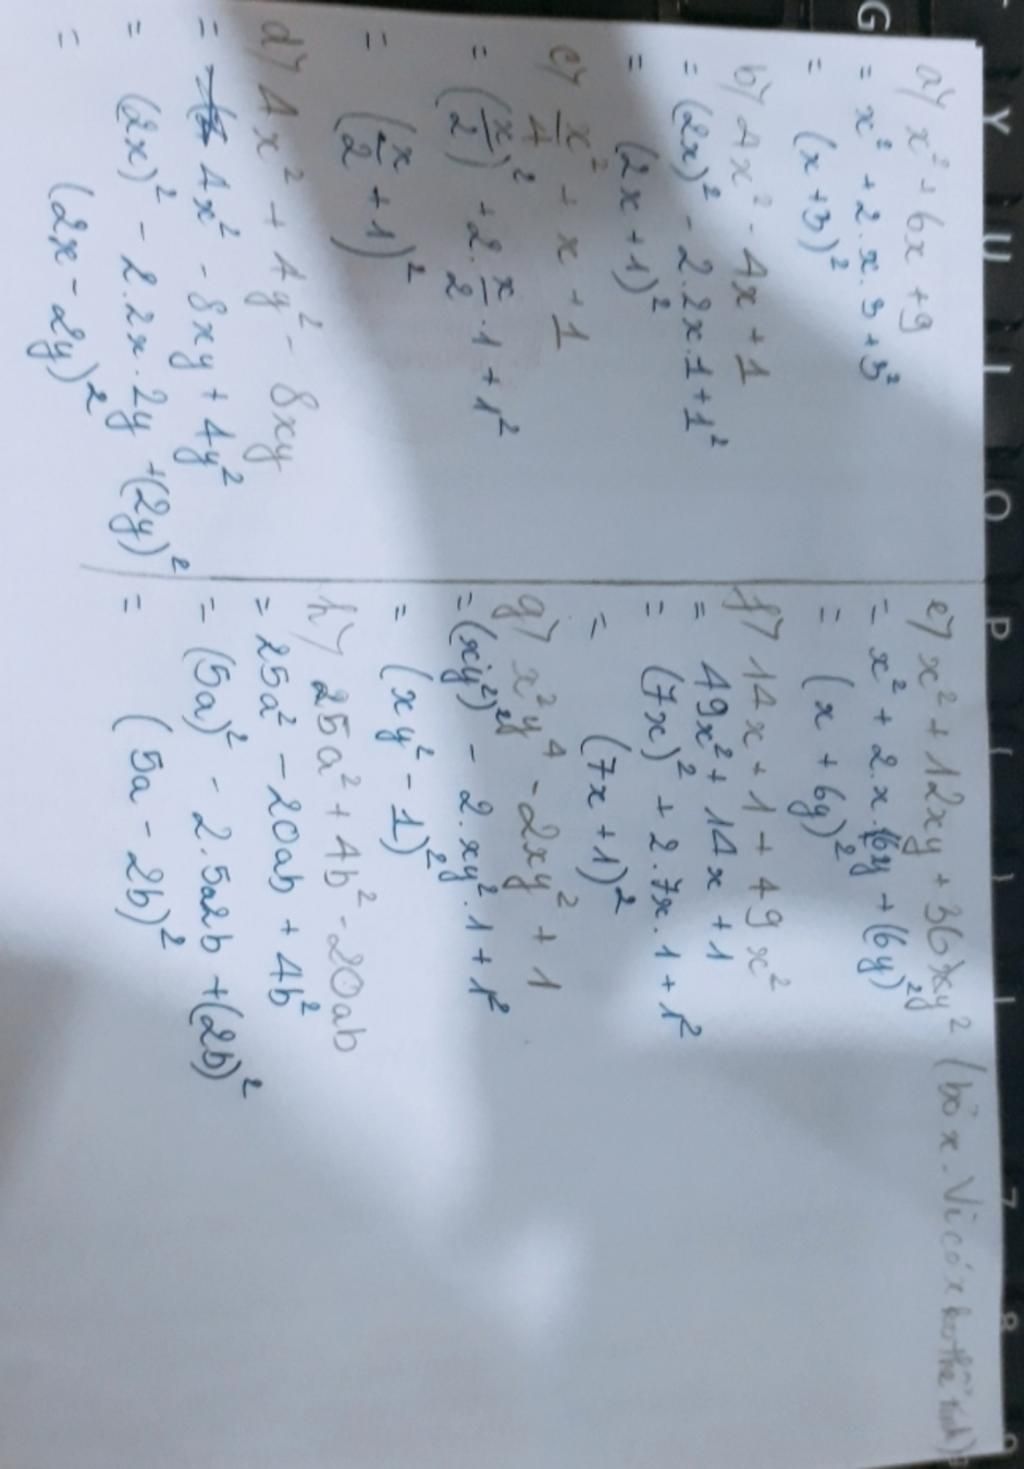 a) x² + 6x + 9
= x² + 2.x.3 + 3²
= (x + 3)²
b) 4x² - 4x + 1
= (2x)² - 2.2x.1 + 1²
= (2x + 1)²
c) x²/4 + x + 1
= (x/2)² + 2.x/2.1 + 1²
= (x/2 + 1)²
d) 4x² + 4y² - 8xy
= 4x² - 8xy + 4y²
= (2x)² - 2.2x.2y + (2y)²
= (2x - 2y)²
e) x² + 12xy + 36xy² (bỏ x. Vì có x không thể tính)
= x² + 2.x.6y + (6y)²
= (x + 6y)²
f) 14x + 1 + 49x²
= 49x² + 14x + 1
= (7x)² + 2.7x.1 + 1²
= (7x + 1)²
g) x²y⁴ - 2xy² + 1
= (xy²)² - 2.xy².1 + 1²
= (xy² - 1)²
h) 25a² + 4b² - 20ab
= 25a² - 20ab + 4b²
= (5a)² - 2.5a2b + (2b)²
= (5a - 2b)²
G
Y U I O P
7 8 9